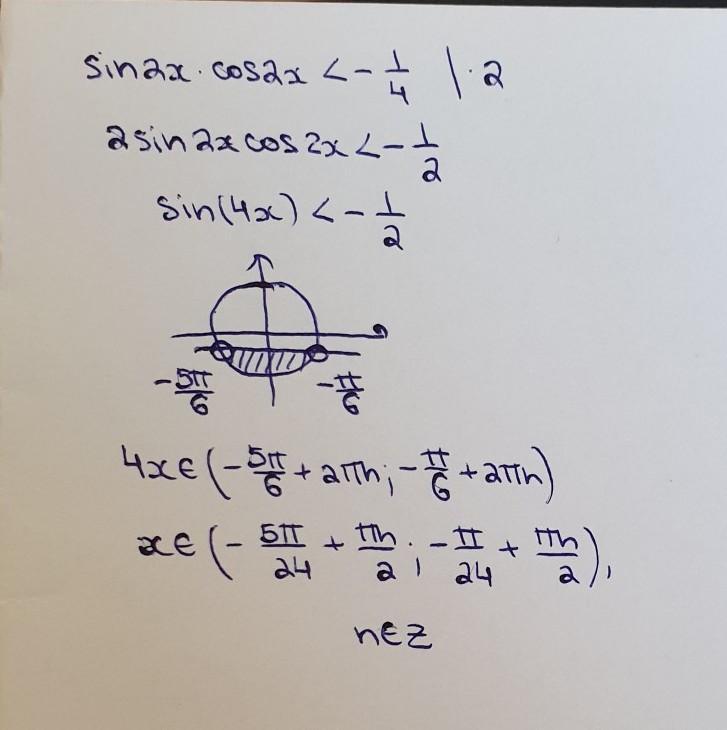 sin2x · cos2x < -1/4 | · 2
2sin2xcos2x < -1/2
sin(4x) < -1/2
-5π/6 -π/6
4x∈(-5π/6 + 2πn; -π/6 + 2πn)
x∈(-5π/24 + πn/2; -π/24 + πn/2),
n∈Z